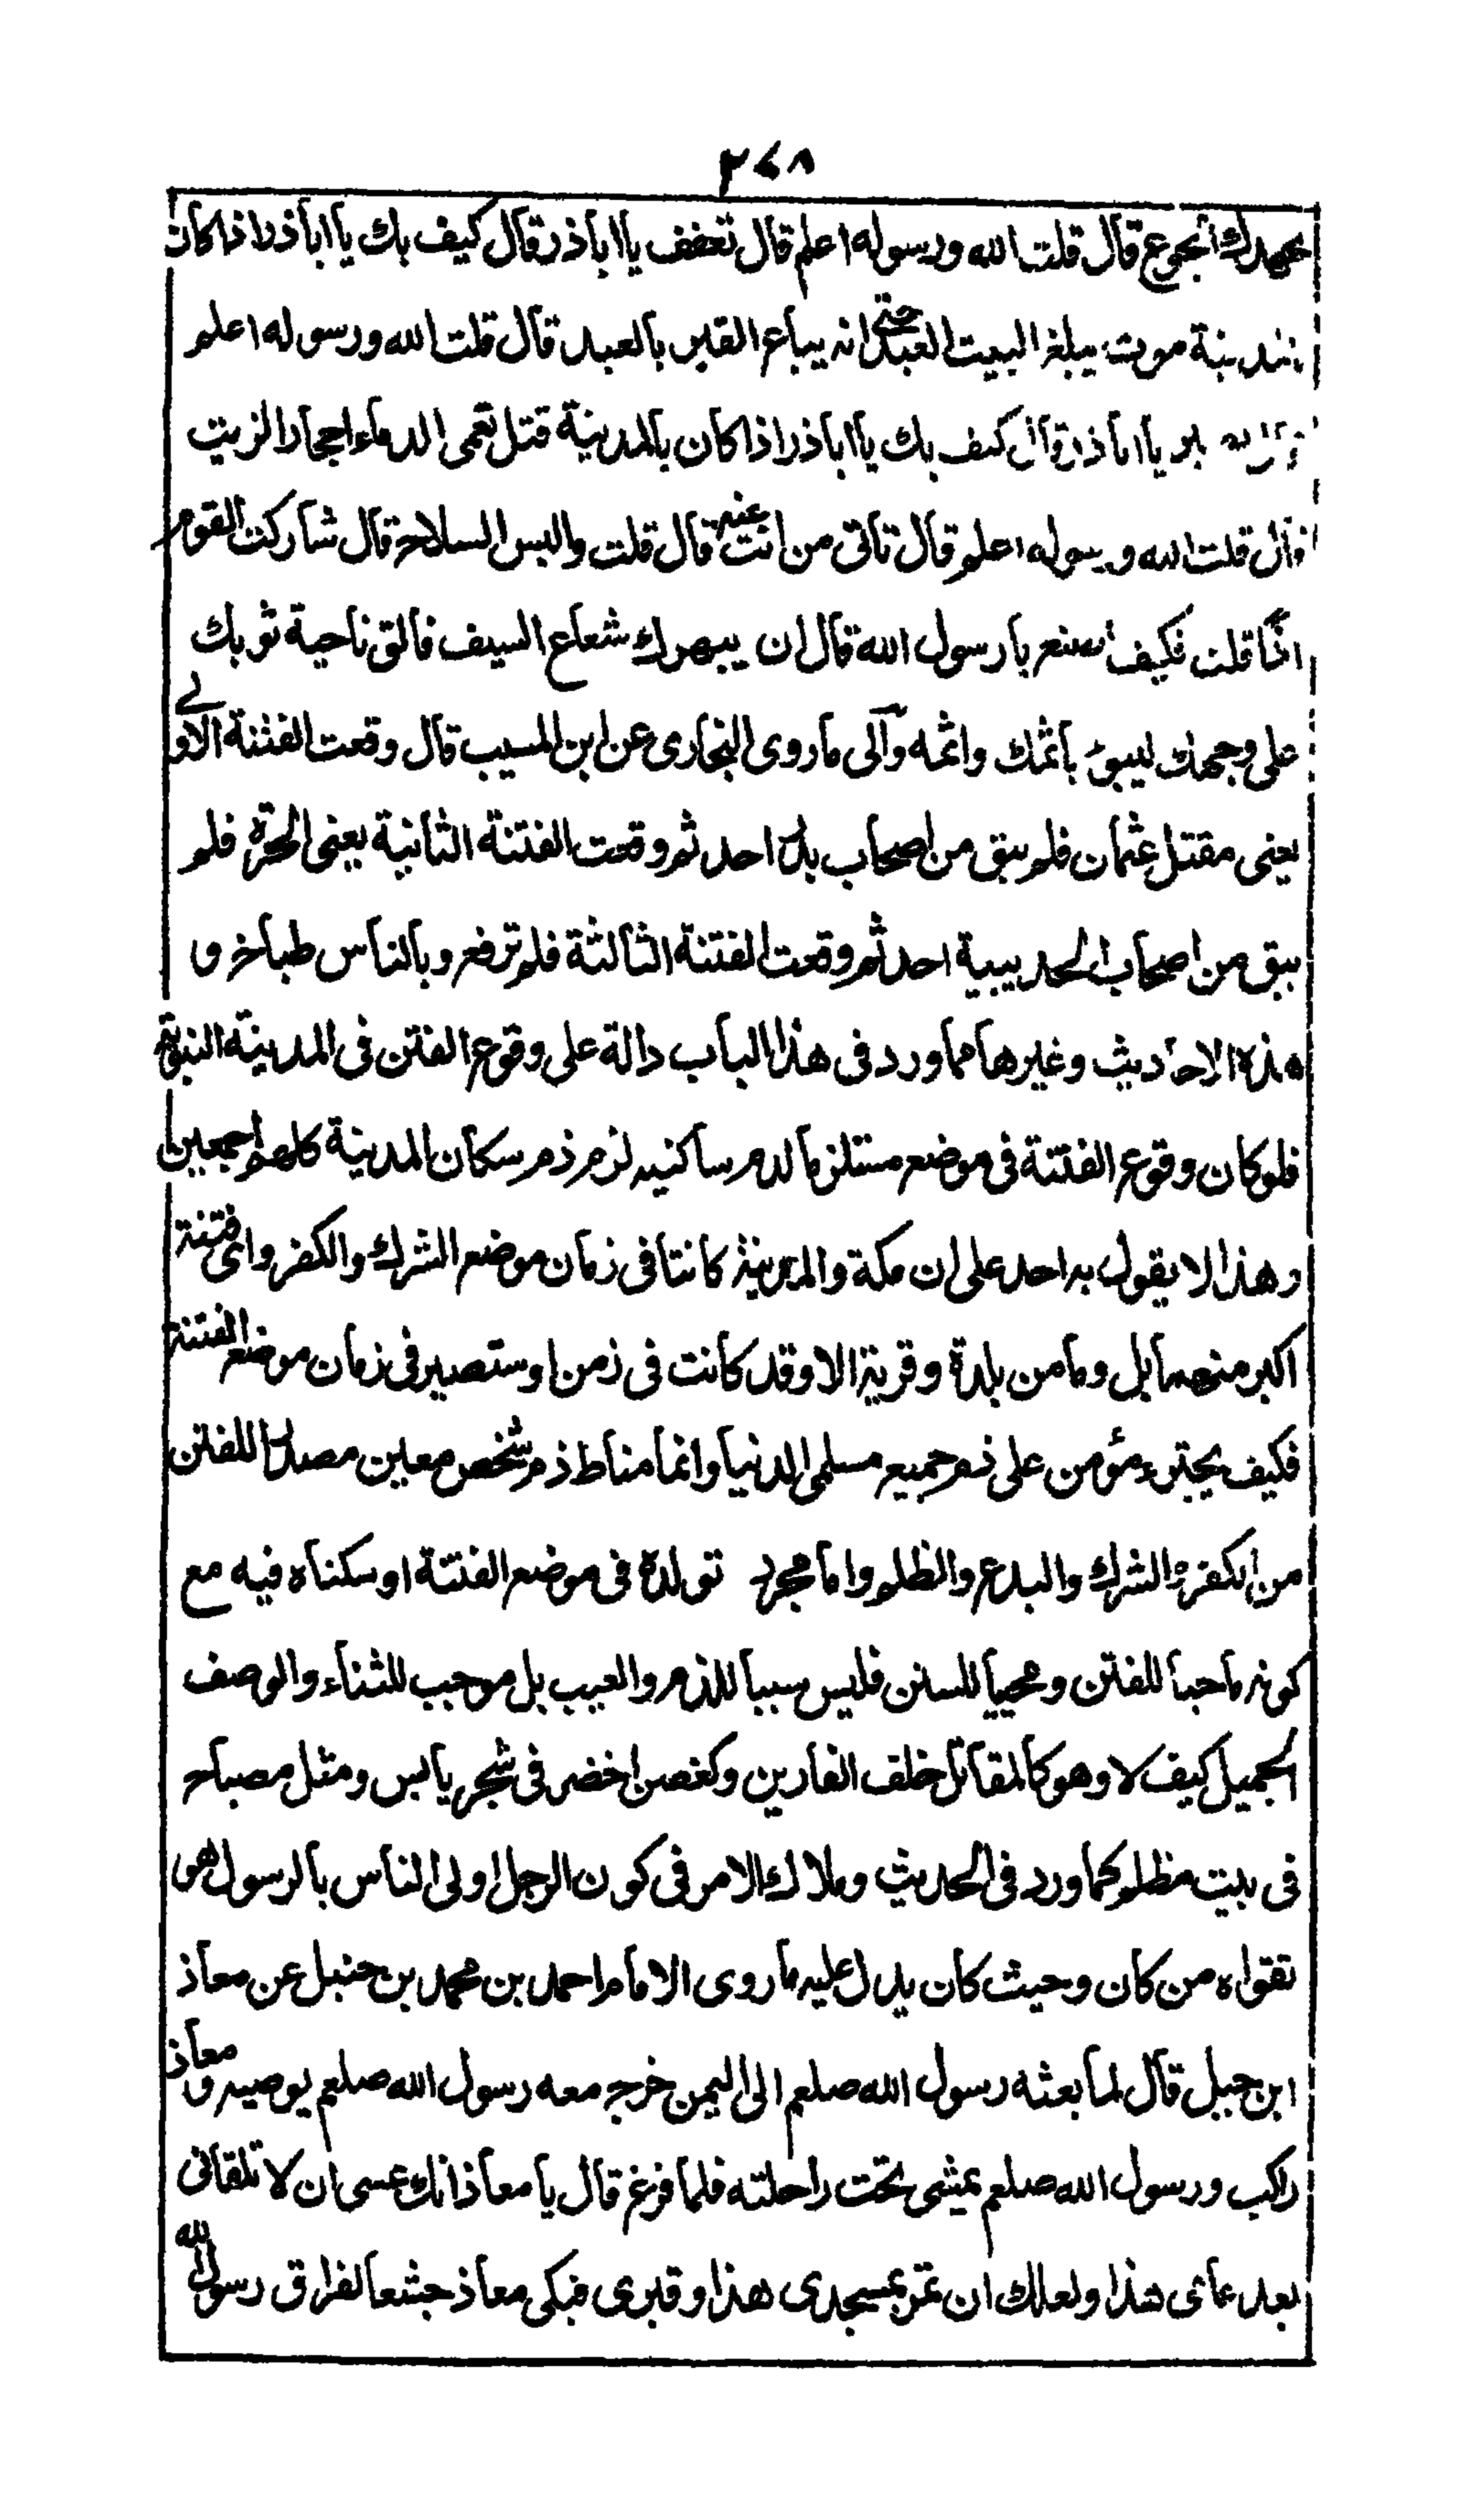 ٢٤٨
يجهدك الجوع قال قلت الله ورسوله اعلم قال تعفف يا اباذر قال كيف بك يا اباذر اذا كان
بالمدينة موت يبلغ البيت العبد حتى انه يباع القبر بالعبد قال قلت الله ورسوله اعلم
يا اباذر قال كيف بك يا اباذر اذا كان بالمدينة قتل تعمى الدماء احجار الزيت
قال قلت الله ورسوله اعلم قال تاتى من انت منه قال قلت والبس السلاح قال شاركت القوم
اذا قلت فكيف اصنع يا رسول الله قال ان يبهرك شعاع السيف فالق ناحية ثوبك
على وجهك ليبوء باثمك واثمه وآلى ما روى البخارى عن ابن المسيب قال وقعت الفتنة الاولے
يعنى مقتل عثمان فلم يبق من اصحاب بدر احد ثم وقعت الفتنة الثانية يعنى الحرة فلم
يبق من اصحاب الحديبية احد ثم وقعت الفتنة الثالثة فلم ترفع وبالناس طباخ و
هذه الاحاديث وغيرها مما ورد فى هذا الباب دالة على وقوع الفتن فى المدينة النبوية
فلو كان وقوع الفتنة فى موضع مستلزما لذم ساكنيه لزم ذم سكان المدينة كلهم اجمعين
وهذا لا يقول به احد على ان مكة والمدينة كانتا فى زمان موضع الشرك والكفر واى فتنة
اكبر منهما بل وما من بلدة وقرية الا وقد كانت فى زمن او ستصير فى زمان موضع الفتنة
فكيف يجترء مؤمن على ذم جميع مسلمى الدنيا وانما مناط ذم شخص معين مصدرا للفتن
من الكفر والشرك والبدع والظلم واما مجرد تولده فى موضع الفتنة او سكناه فيه مع
كونه ماحيا للفتن ومحييا للسنن فليس سببا للذم والعيب بل موجب للثناء والوصف
الجميل كيف لا وهو كالمقاتل خلف الفارين وكغصن اخضر فى شجر يابس ومثل مصباح
فى بيت مظلم كما ورد فى الحديث وملاك الامر فى كون الرجل اولى الناس بالرسول هو
تقواه من كان وحيث كان يدل عليه ما روى الامام احمد بن محمد بن حنبل عن معاذ
ابن جبل قال لما بعثه رسول الله صلعم الى اليمن خرج معه رسول الله صلعم يوصيه ومعاذ
راكب ورسول الله صلعم يمشى تحت راحلته فلما فرغ قال يا معاذ انك عسى ان لا تلقانى
بعد عامى هذا ولعلك ان تمر بمسجدى هذا وقبرى فبكى معاذ جشعا لفراق رسول الله